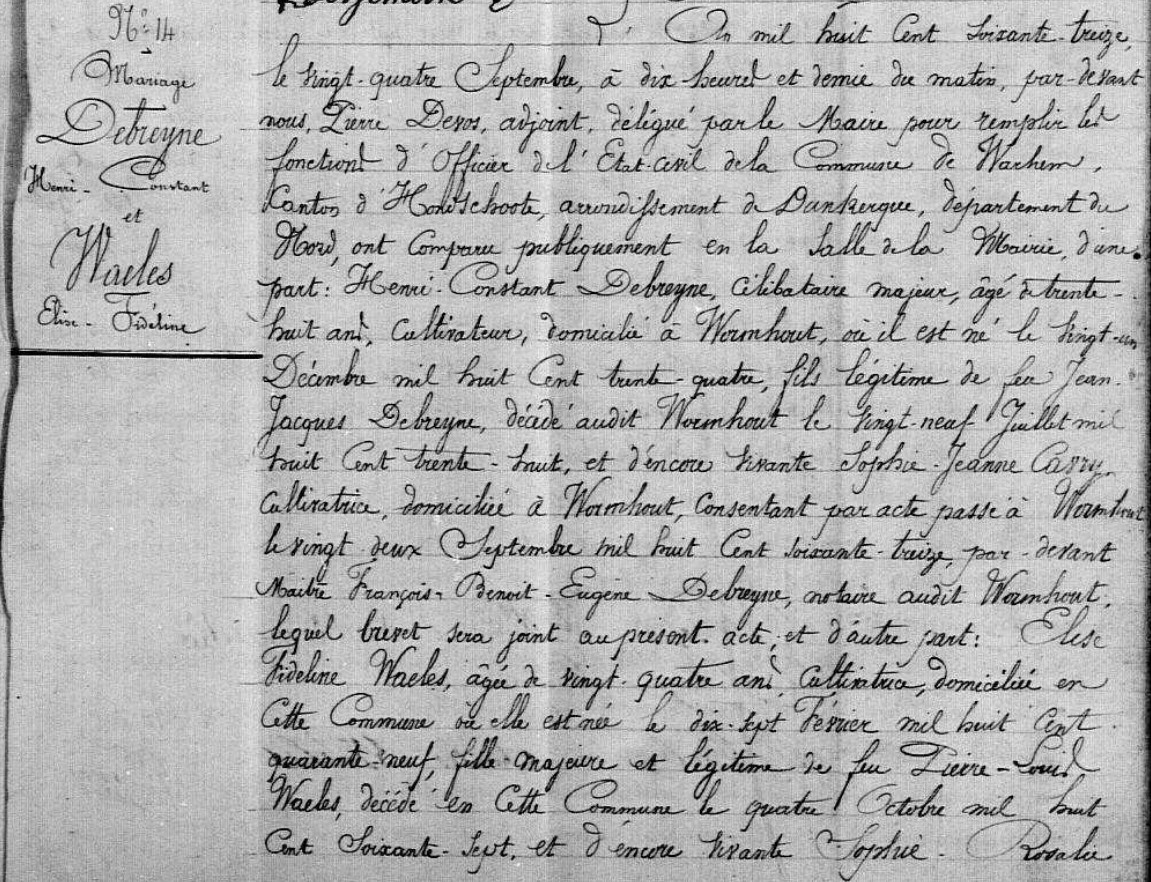 N° 14
Mariage
Debreyne
Henri - Constant
et
Waeles
Elise - Fidéline
L'An mil huit Cent soixante-treize,
le vingt-quatre Septembre, à dix heures et demie du matin, par-devant
nous, Pierre Devos, adjoint, délégué par le Maire pour remplir les
fonctions d'Officier de l'Etat-civil de la Commune de Warhem,
Canton d'Hondschoote, arrondissement de Dunkerque, département du
Nord, ont comparu publiquement en la salle de la Mairie, d'une
part: Henri-Constant Debreyne, célibataire majeur, âgé de trente-
huit ans, cultivateur, domicilié à Wormhout, où il est né le vingt-un
Décembre mil huit Cent trente-quatre, fils légitime de feu Jean-
Jacques Debreyne, décédé audit Wormhout le vingt-neuf Juillet mil
huit Cent trente-huit, et d'encore vivante Sophie-Jeanne
Cultivatrice, domiciliée à Wormhout, consentant par acte passé à Wormhout
le vingt deux Septembre mil huit Cent soixante-treize, par-devant
Maître François-Benoit-Eugène Debreyne, notaire audit Wormhout,
lequel brevet sera joint au présent acte; et d'autre part: Elise
Fidéline Waeles, âgée de vingt-quatre ans, Cultivatrice, domiciliée en
Cette Commune où elle est née le dix-sept Février mil huit Cent
quarante-neuf, fille majeure et légitime de feu Pierre-Louis
Waeles, décédé en Cette Commune le quatre Octobre mil huit
Cent Soixante-sept, et d'encore vivante Sophie-Rosalie